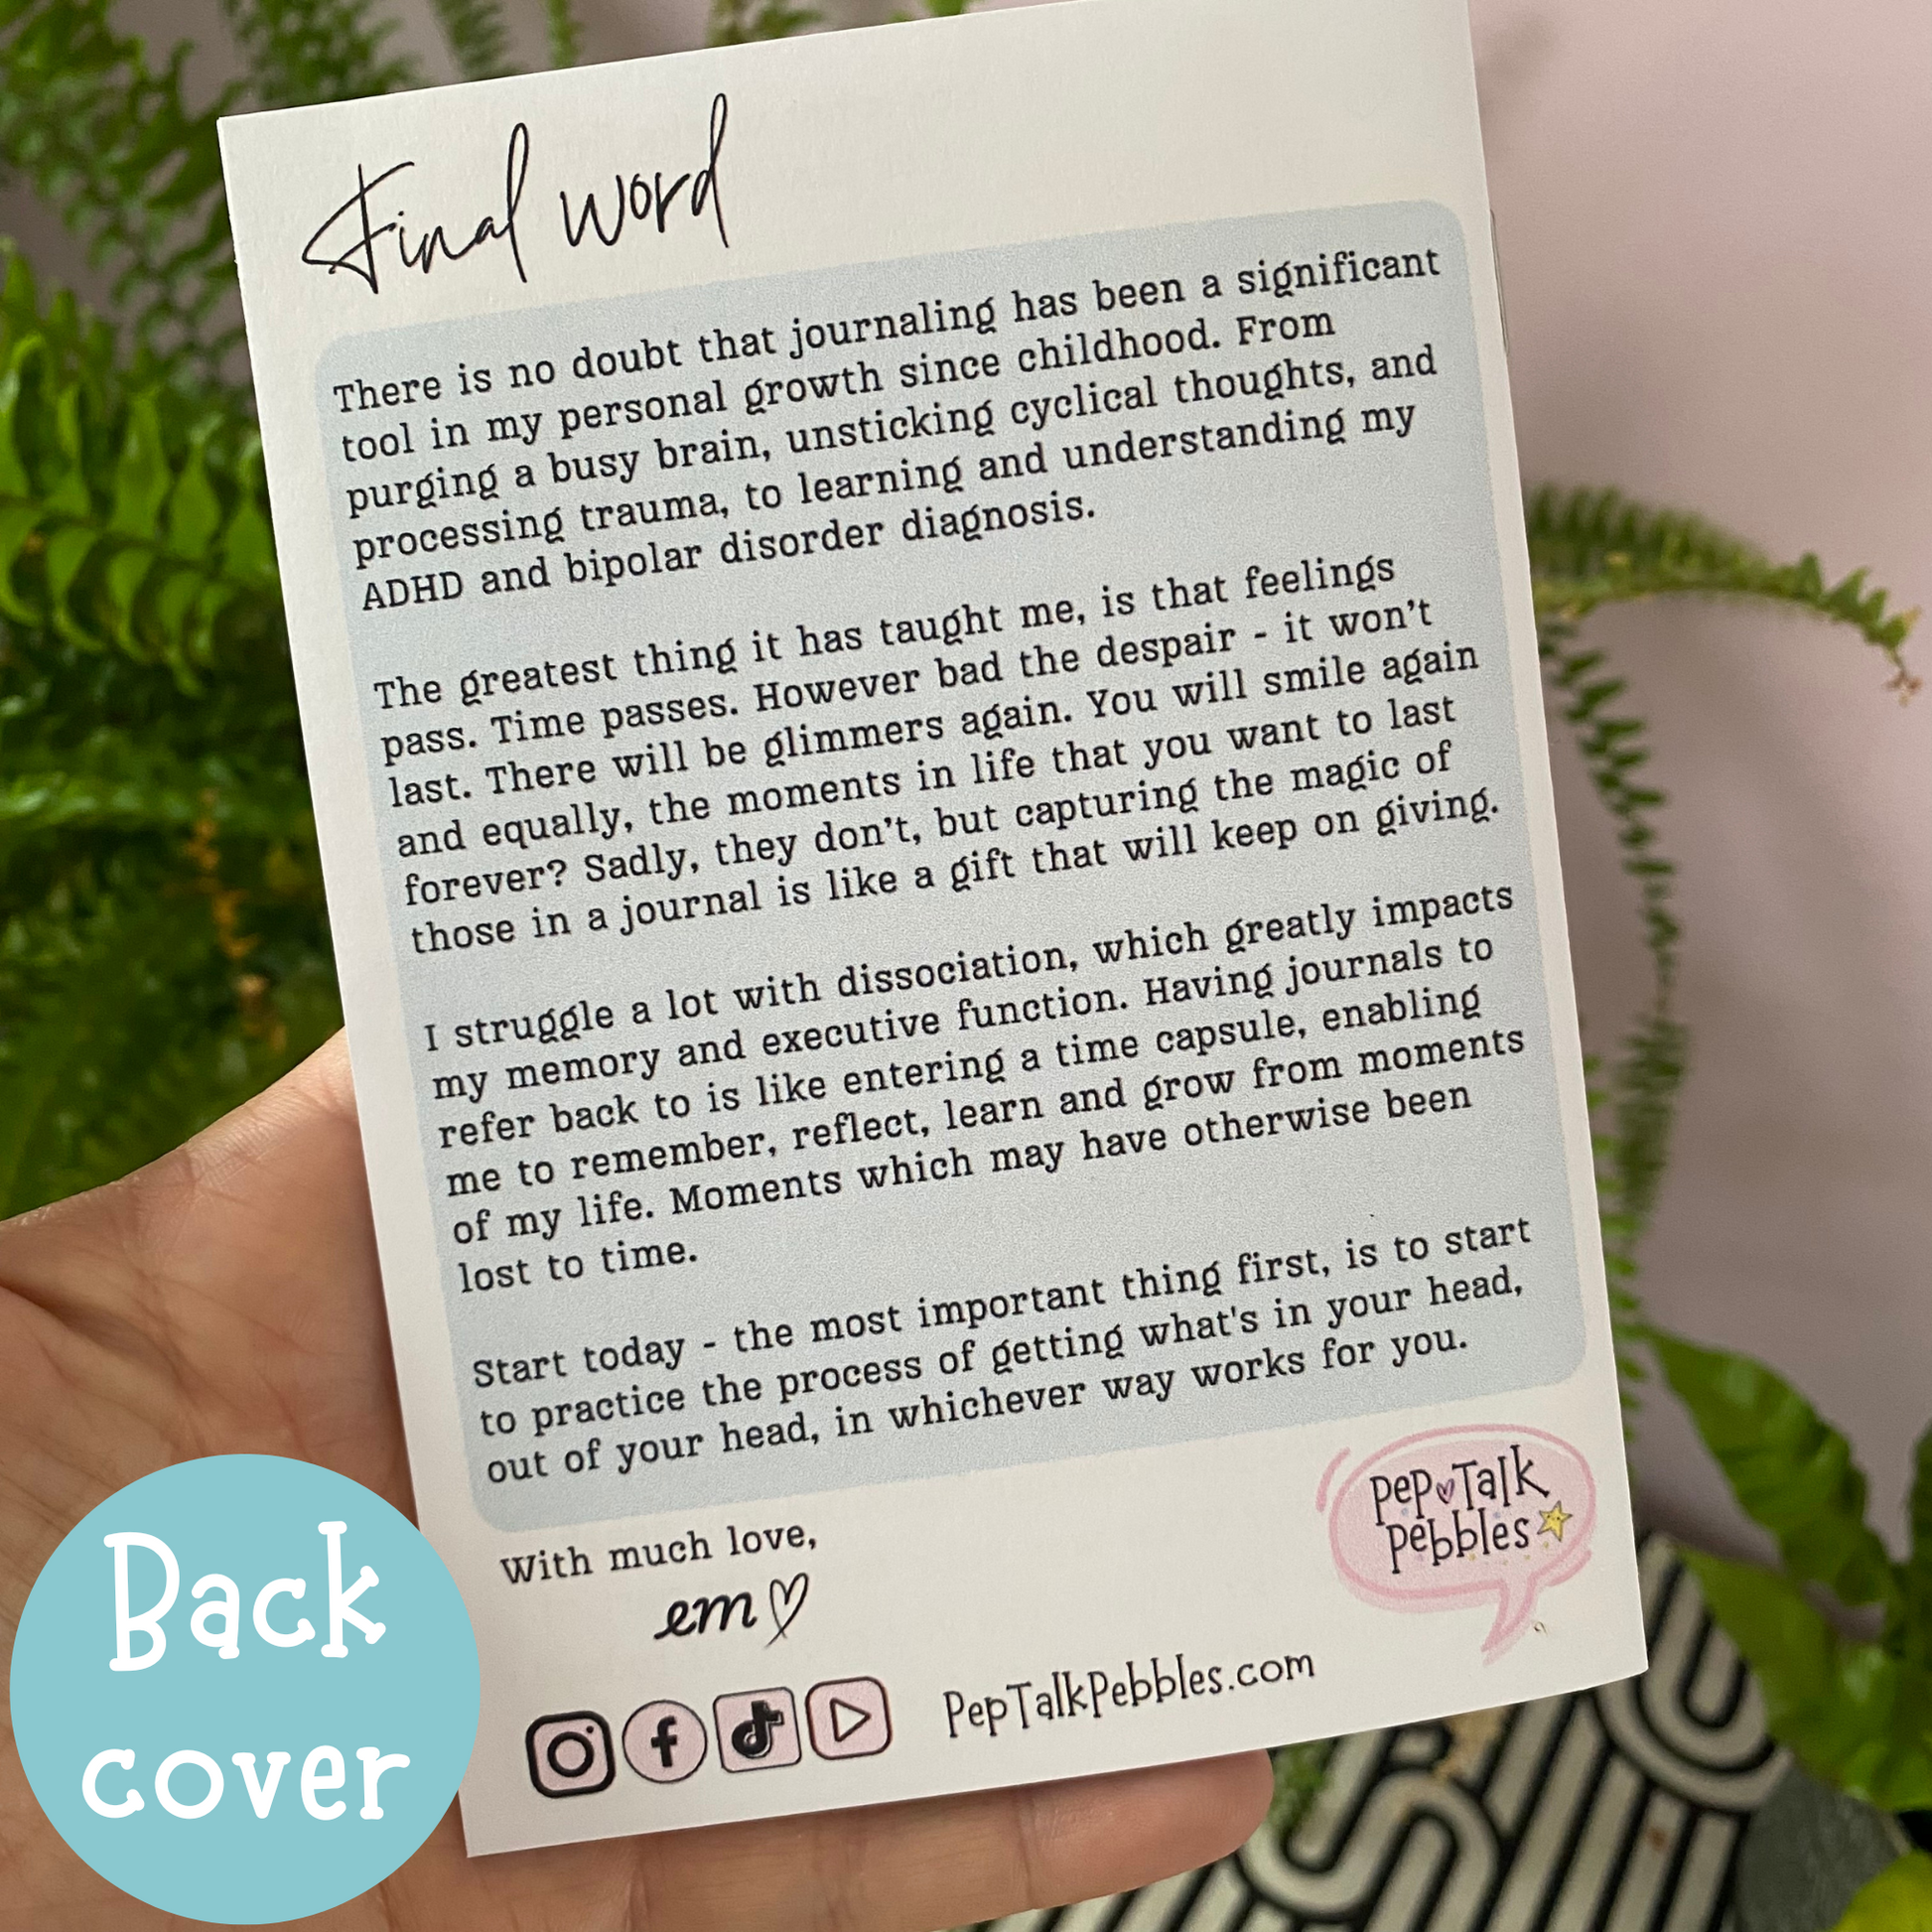 Final word
There is no doubt that journaling has been a significant
tool in my personal growth since childhood. From
purging a busy brain, unsticking cyclical thoughts, and
processing trauma, to learning and understanding my
ADHD and bipolar disorder diagnosis.
The greatest thing it has taught me, is that feelings
pass. Time passes. However bad the despair - it won't
last. There will be glimmers again. You will smile again
and equally, the moments in life that you want to last
forever? Sadly, they don't, but capturing the magic of
those in a journal is like a gift that will keep on giving.
I struggle a lot with dissociation, which greatly impacts
my memory and executive function. Having journals to
refer back to is like entering a time capsule, enabling
me to remember, reflect, learn and grow from moments
of my life. Moments which may have otherwise been
lost to time.
Start today - the most important thing first, is to start
to practice the process of getting what's in your head,
out of your head, in whichever way works for you.
With much love,
em♡
Pep Talk
Pebbles
PepTalkPebbles.com
Back
cover